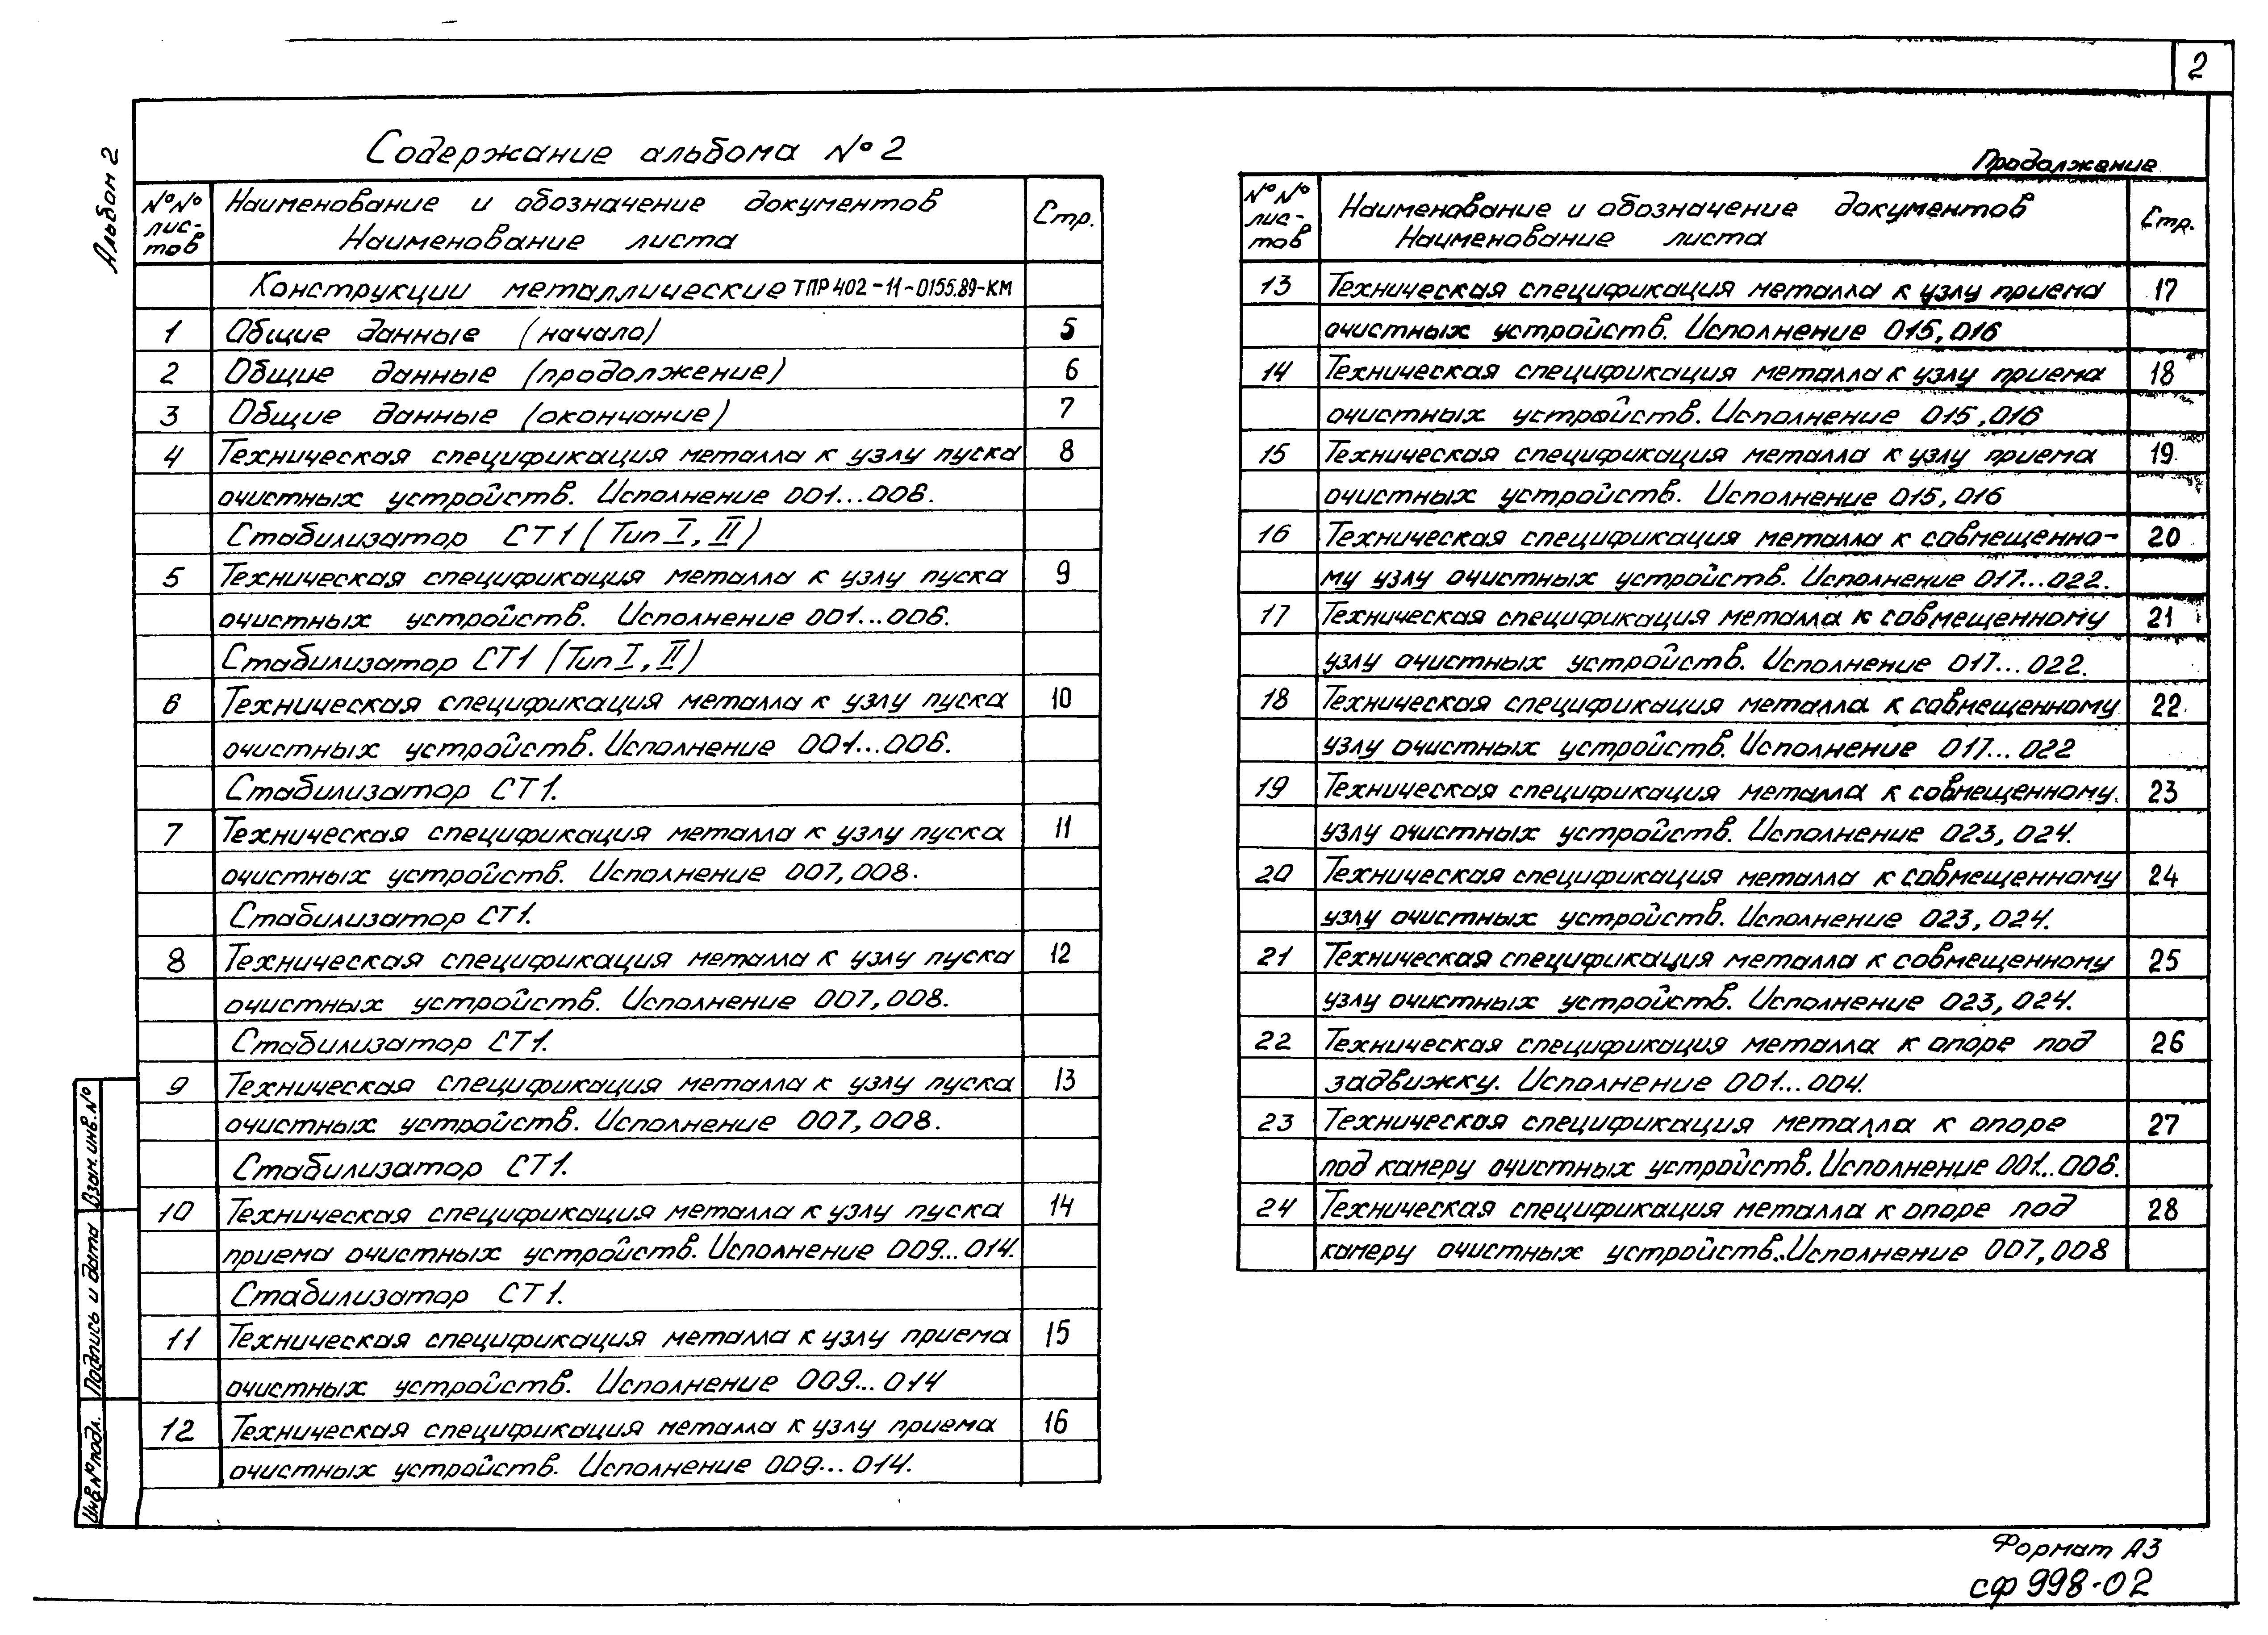 2
Альбом 2
Содержание альбома №2
№№ лис- тов
Наименование и обозначение документов
Наименование листа
Стр.
Конструкции металлические ТПР 402-11-0155.89-КМ
1 Общие данные (начало) 5
2 Общие данные (продолжение) 6
3 Общие данные (окончание) 7
4 Техническая спецификация металла к узлу пуска 8
очистных устройств. Исполнение 001...006.
Стабилизатор СТ1 (Тип I, II)
5 Техническая спецификация металла к узлу пуска 9
очистных устройств. Исполнение 001...006.
Стабилизатор СТ1 (Тип I, II)
6 Техническая спецификация металла к узлу пуска 10
очистных устройств. Исполнение 001...006.
Стабилизатор СТ1.
7 Техническая спецификация металла к узлу пуска 11
очистных устройств. Исполнение 007, 008.
Стабилизатор СТ1.
8 Техническая спецификация металла к узлу пуска 12
очистных устройств. Исполнение 007, 008.
Стабилизатор СТ1.
9 Техническая спецификация металла к узлу пуска 13
очистных устройств. Исполнение 007, 008.
Стабилизатор СТ1.
10 Техническая спецификация металла к узлу пуска 14
приема очистных устройств. Исполнение 009...014.
Стабилизатор СТ1.
11 Техническая спецификация металла к узлу приема 15
очистных устройств. Исполнение 009...014
12 Техническая спецификация металла к узлу приема 16
очистных устройств. Исполнение 009...014.
Продолжение
№№ лис- тов
Наименование и обозначение документов
Наименование листа
Стр.
13 Техническая спецификация металла к узлу приема 17
очистных устройств. Исполнение 015, 016
14 Техническая спецификация металла к узлу приема 18
очистных устройств. Исполнение 015, 016
15 Техническая спецификация металла к узлу приема 19
очистных устройств. Исполнение 015, 016
16 Техническая спецификация металла к совмещенно- 20
му узлу очистных устройств. Исполнение 017...022.
17 Техническая спецификация металла к совмещенному 21
узлу очистных устройств. Исполнение 017...022.
18 Техническая спецификация металла к совмещенному 22
узлу очистных устройств. Исполнение 017...022
19 Техническая спецификация металла к совмещенному 23
узлу очистных устройств. Исполнение 023, 024.
20 Техническая спецификация металла к совмещенному 24
узлу очистных устройств. Исполнение 023, 024.
21 Техническая спецификация металла к совмещенному 25
узлу очистных устройств. Исполнение 023, 024.
22 Техническая спецификация металла к опоре под 26
задвижку. Исполнение 001...004.
23 Техническая спецификация металла к опоре 27
под камеру очистных устройств. Исполнение 001..006.
24 Техническая спецификация металла к опоре под 28
камеру очистных устройств. Исполнение 007, 008
Взам. инв. №
Подпись и дата
Инв. № подл.
Формат А3
сф 998-02